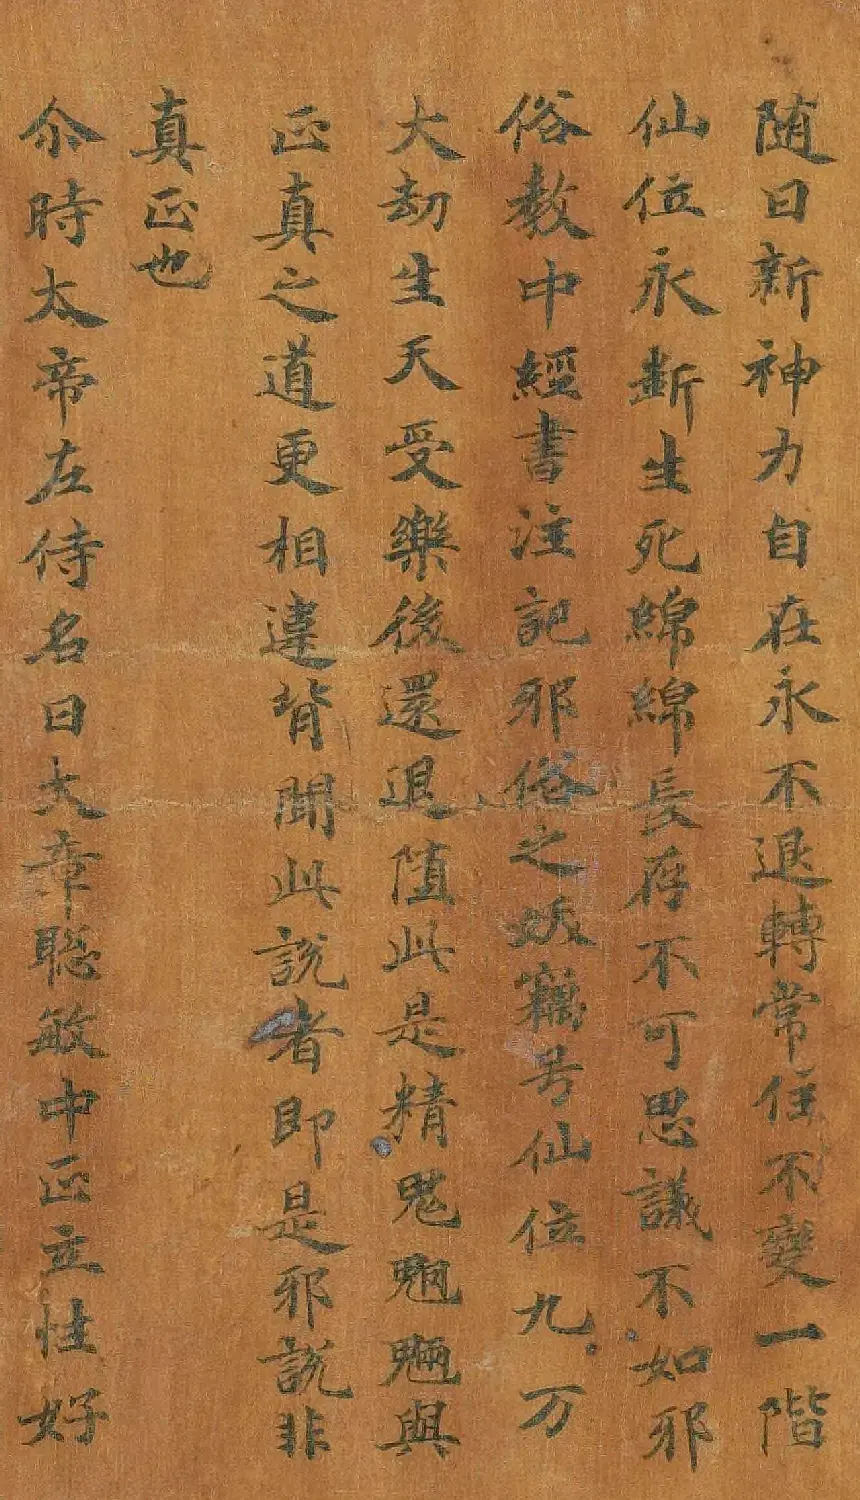 随日新神力自在永不退轉常住不變一階
仙位永斷生死綿綿長存不可思議不如邪
俗教中經書注記邪俗之妖竊号仙位九万
大劫生天受樂後還退堕此是精鬼魍魎與
正真之道更相違背聞此說者即是邪說非
真正也
尒時太帝左侍名曰大章聡敏中正立性好